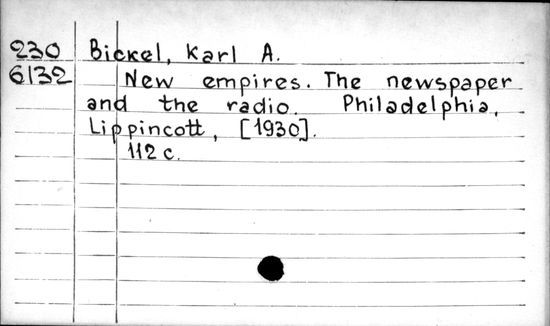 230 Bickel, Karl A.
6132 New empires. The newspaper
and the radio. Philadelphia,
Lippincott, [1930].
112 c.